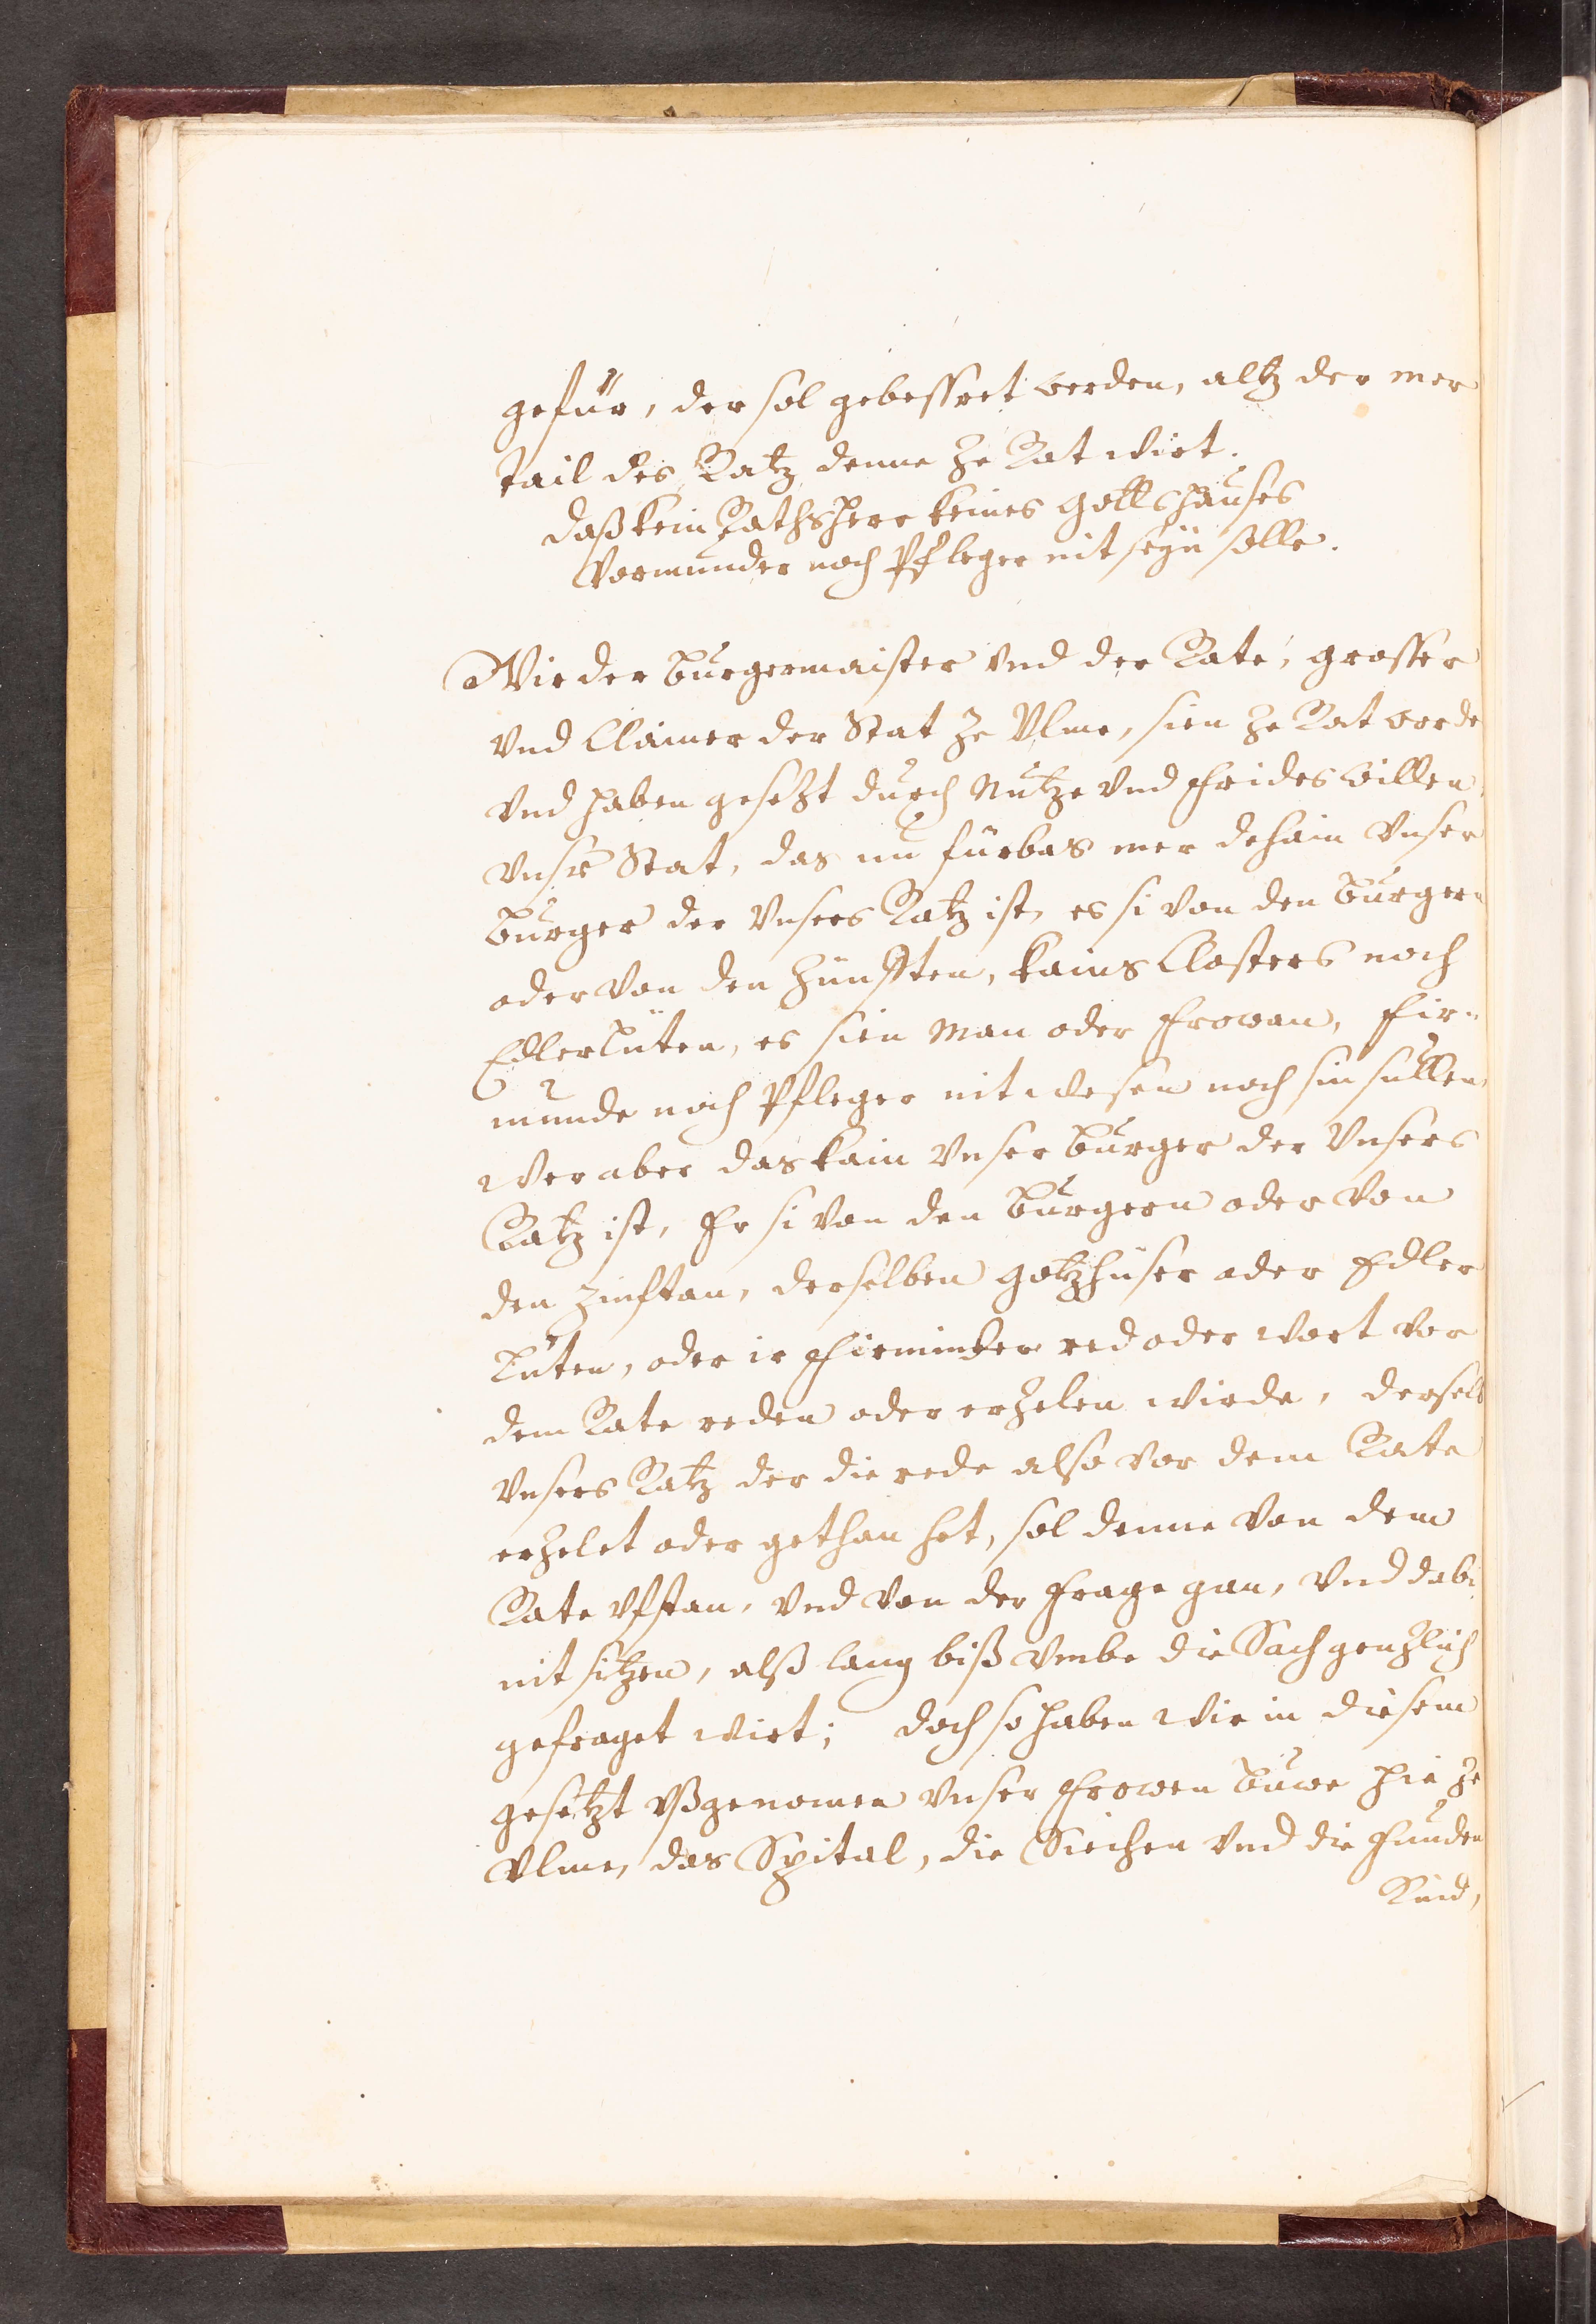 gefür, der sol gebessret werden, altz der mer
tail des Ratz denne ze Rat wirt.
daß kein Rathsherr keines Gottshauses
Vormunder noch Pfleger nit seÿn solle.
Wir der Burgermaister vnd der Rate, grosser
vnd Clainer der Stat ze Vlme, sien ze Rat worde
vnd haben gesetzt durch Nutze vnd frides willen
vnsr Stat, das nu fürbas mer dehain vnser
Burger der vnsers Ratz ist, es si von den Burgern
oder von den Zünfften, kains Closters noch
Edlerlüten, es sien Man oder Frowan, Für-
munde noch Pfleger nit wesen noch sin sullen
Wer aber das kain vnser Burger der vnsers
Ratz ist, Er si von den Burgern oder von
den Zunftan, derselben gotzhuser oder Edler
lüten, oder ir Fürminder red oder wort vor
dem Rate reden oder erzelen wirde, derselb
vnsers Ratz der die rede also vor dem Rate
erzelet oder gethan het, sol denne von dem
Rate vfstan, vnd von der Frage gan, vnd dabi
nit sitzen, alß lang biß vmbe die Sach genzlich
gefraget wirt; doch so haben wir in diesem
gesetzt vßgenomen vnser Frowen Buwe hie ze
Vlme, das Spital, die Siechen vnd die Funden
Kind,